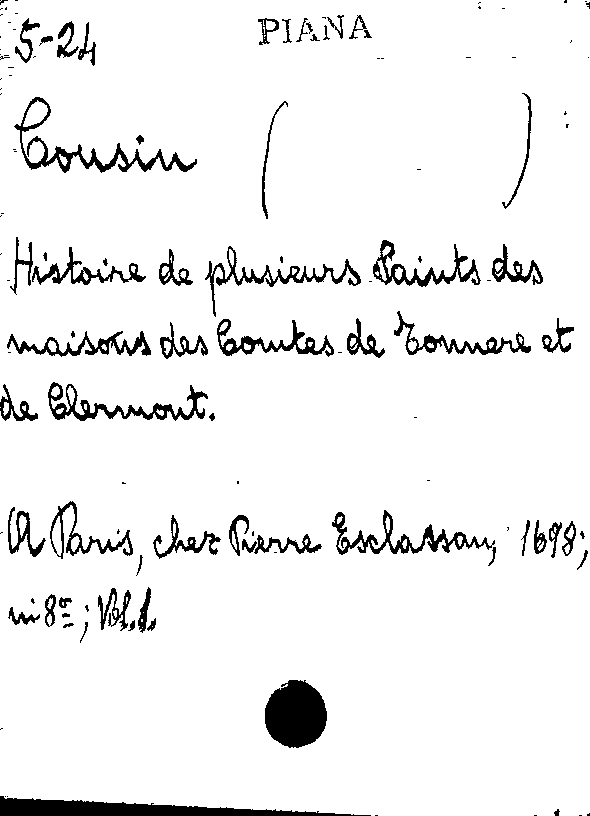 5-24
PIANA
Cousin ( )
Histoire de plusieurs Saints des
maisons des Comtes de Tonnere et
de Clermont.
A Paris, chez Pierre Esclassan, 1698;
in 8º; Vol.1.